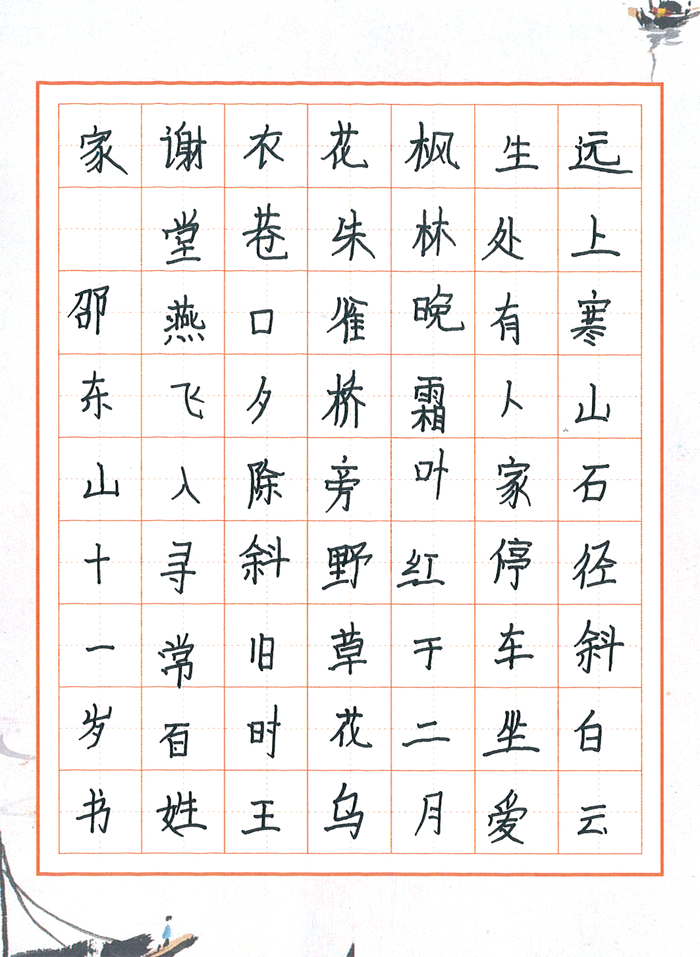 远上寒山石径斜白云
生处有卜家停车坐爱
枫林晚霜叶红于二月
花朱雀桥旁野草花乌
衣巷口夕除斜旧时王
谢堂燕飞入寻常百姓
家 邵东山十一岁书